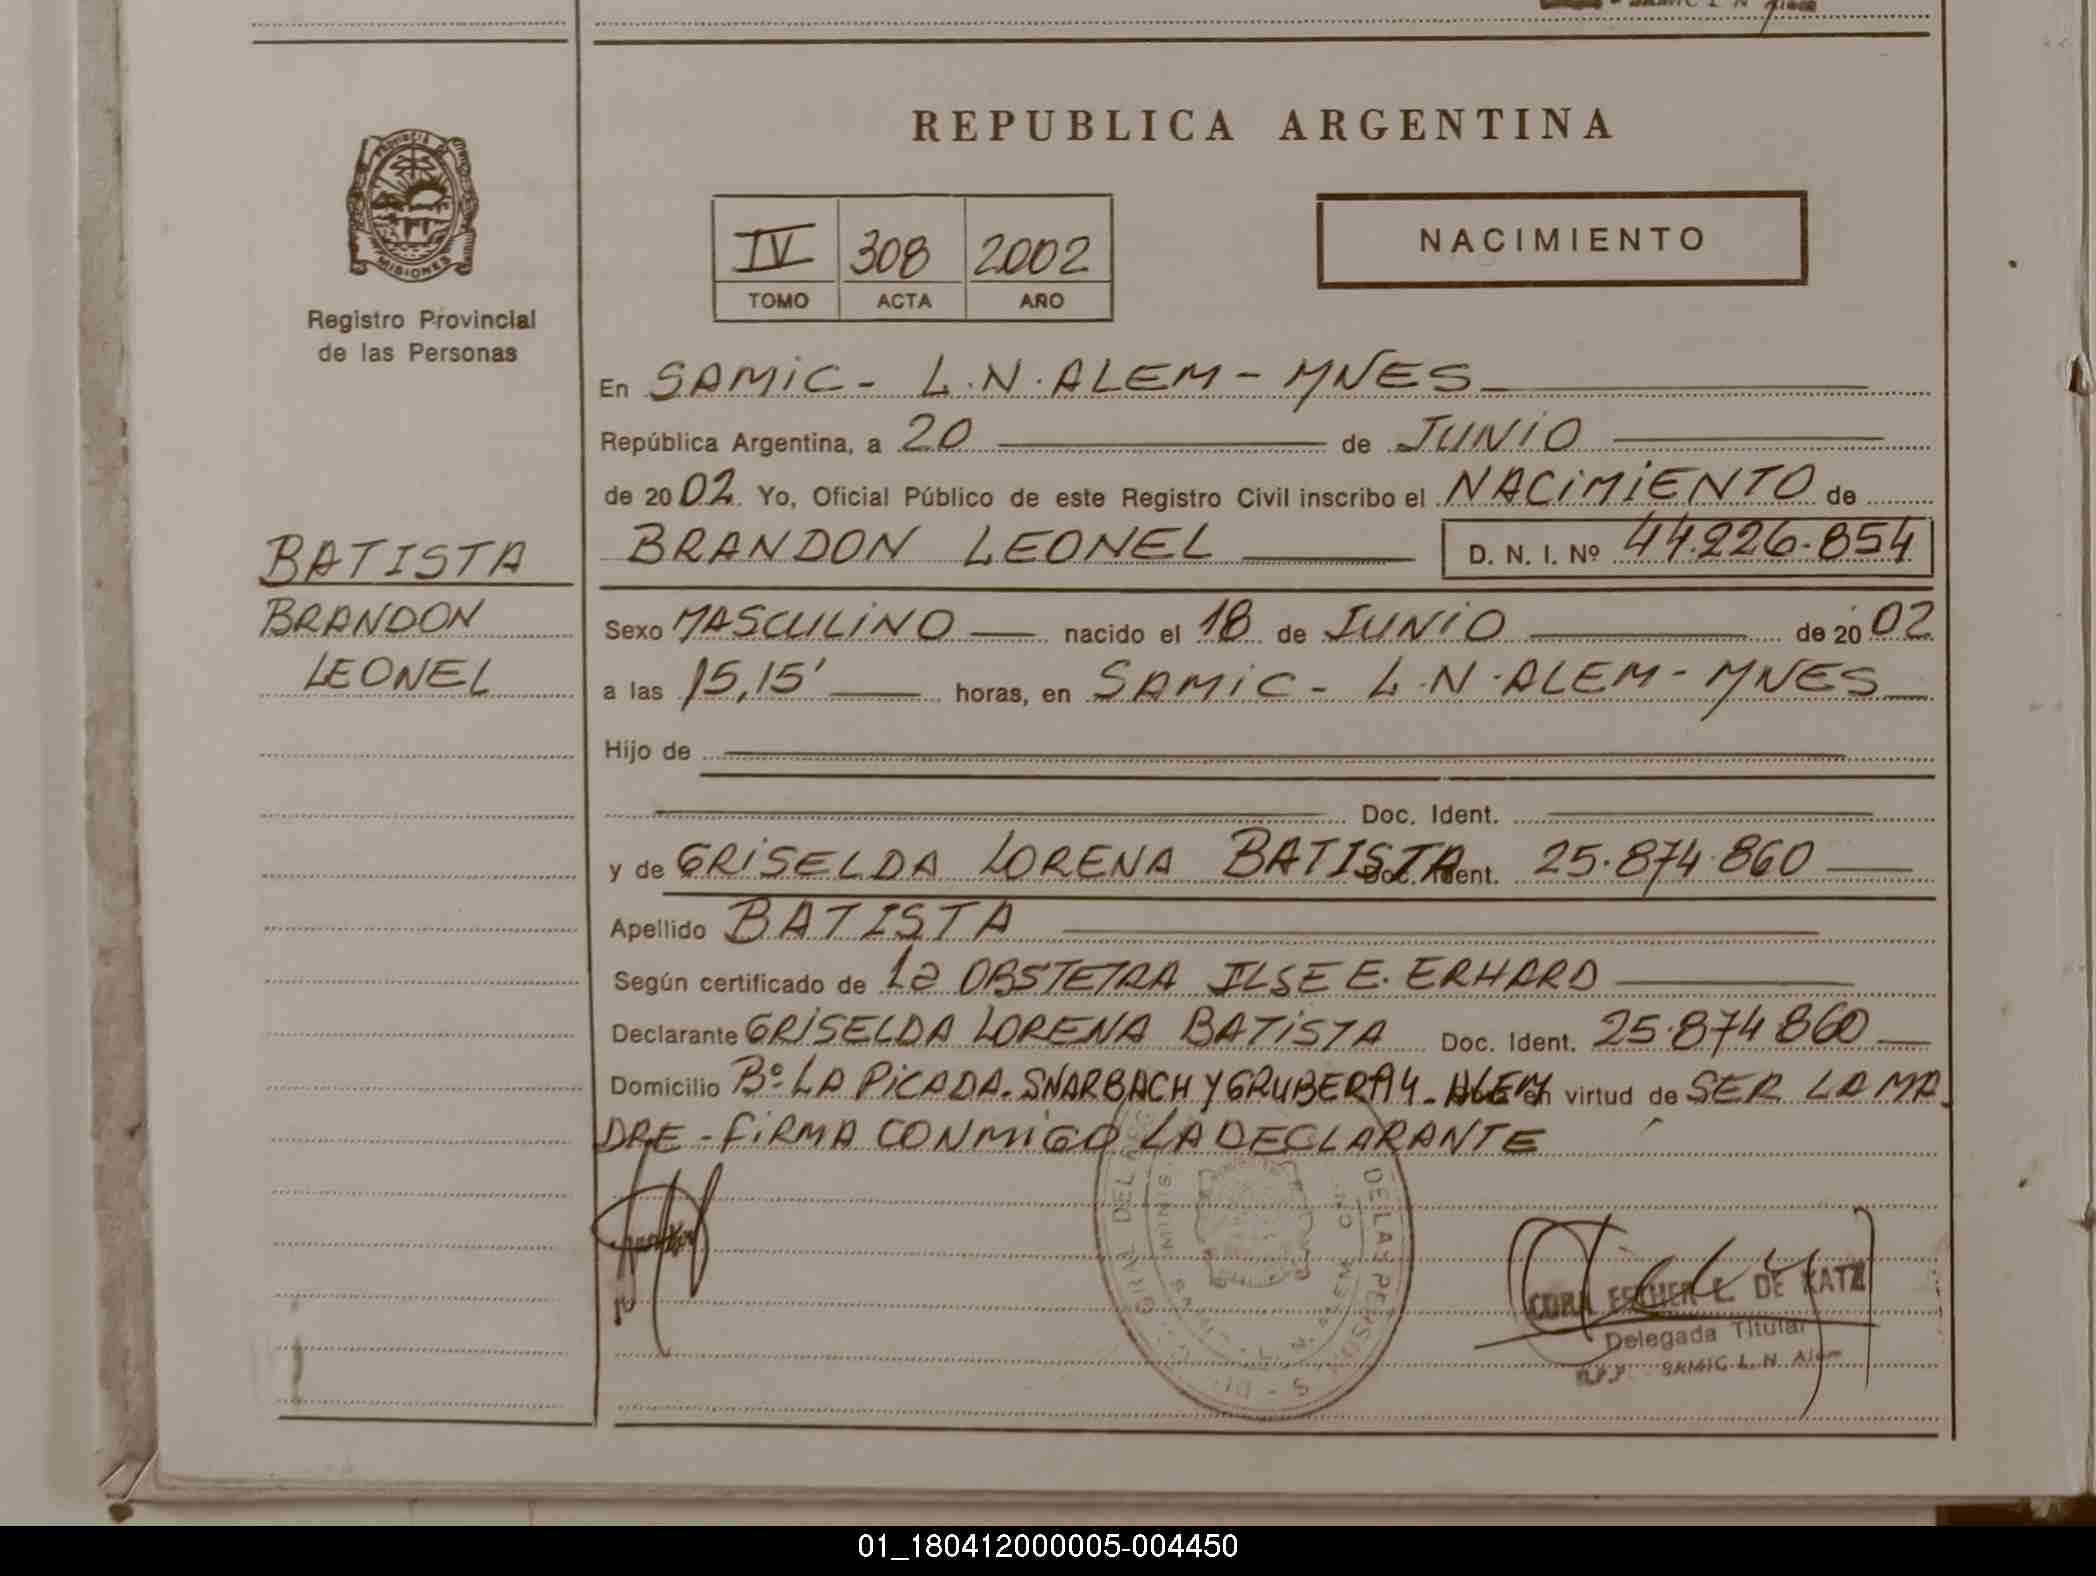 SAMIC L N Alem
REPUBLICA ARGENTINA
PROVINCIA DE
MISIONES
Registro Provincial
de las Personas
IV 308 2002
TOMO ACTA AÑO
NACIMIENTO
En SAMIC - L.N. ALEM - MNES
República Argentina, a 20 de JUNIO
de 2002 Yo, Oficial Público de este Registro Civil inscribo el NACIMIENTO de
BATISTA
BRANDON
LEONEL
BRANDON LEONEL D. N. I. Nº 44.226.854
Sexo MASCULINO nacido el 18 de JUNIO de 2002
a las 15,15' horas, en SAMIC - L.N. ALEM - MNES
Hijo de
Doc. Ident.
y de GRISELDA LORENA BATISTA Doc. Ident. 25.874.860
Apellido BATISTA
Según certificado de La OBSTETRA ILSE E. ERHARD
Declarante GRISELDA LORENA BATISTA Doc. Ident. 25.874860
Domicilio Bº LA PICADA. SNARBACH Y GRUBER A4 - ALEM en virtud de SER LA MA
DRE - FIRMA CONMIGO LA DECLARANTE
CORA ESTHER L. DE KATZ
Delegada Titular
R.P.P. SAMIC L. N. Alem
01_180412000005-004450